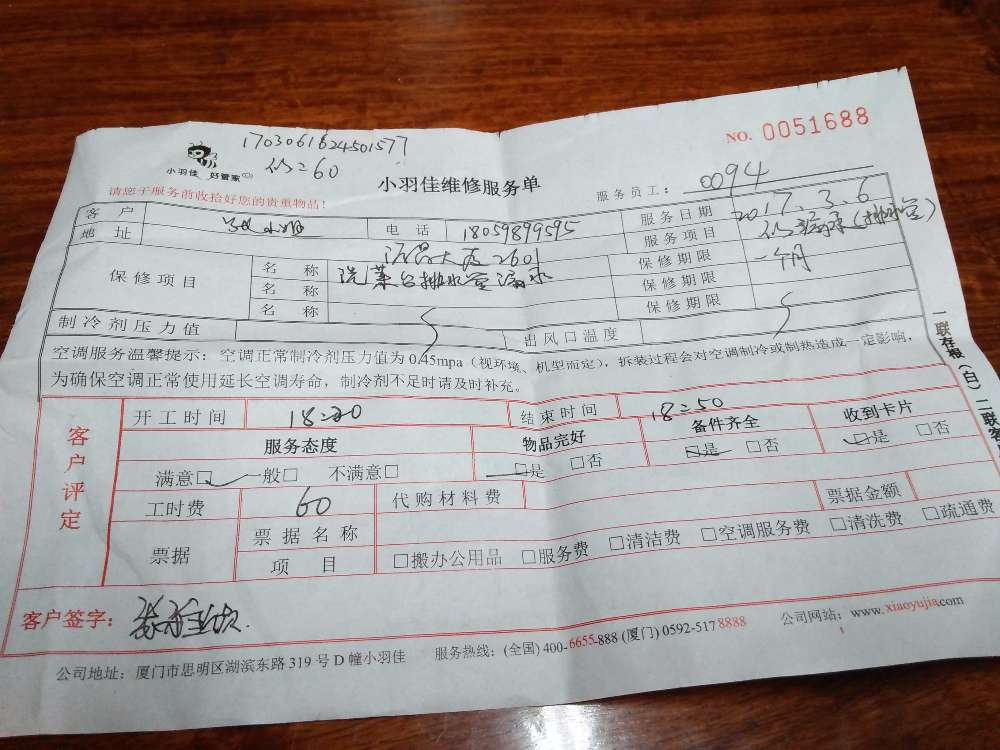 1703061624501577
NO. 0051688
小羽佳 好管家
小羽佳维修服务单
服务员工： 0094
请您于服务前收拾好您的贵重物品！
客 户 小姐 电 话 18059899595 服务日期 2017.3.6
地 址 大厦2601 服务项目 漏水（排水管）
保修项目 名 称 洗菜台排水管漏水 保修期限 一个月
名 称 保修期限
名 称 保修期限
制冷剂压力值 出风口温度
空调服务温馨提示：空调正常制冷剂压力值为 0.45mpa（视环境、机型而定），拆装过程会对空调制冷或制热造成一定影响，
为确保空调正常使用延长空调寿命，制冷剂不足时请及时补充。
一联存根（白）二联客
客户评定
开工时间 结束时间 18:50
服务态度 物品完好 备件齐全 收到卡片
满意□ 一般□ 不满意□ □是 □否 □是 □否 □是 □否
工时费 60 代购材料费 票据金额
票据 票据名称
项 目 □搬办公用品 □服务费 □清洁费 □空调服务费 □清洗费 □疏通费
客户签字：
公司地址：厦门市思明区湖滨东路 319 号 D 幢小羽佳 服务热线：(全国) 400-6655-888 (厦门) 0592-5178888 公司网站：www.xiaoyujia.com